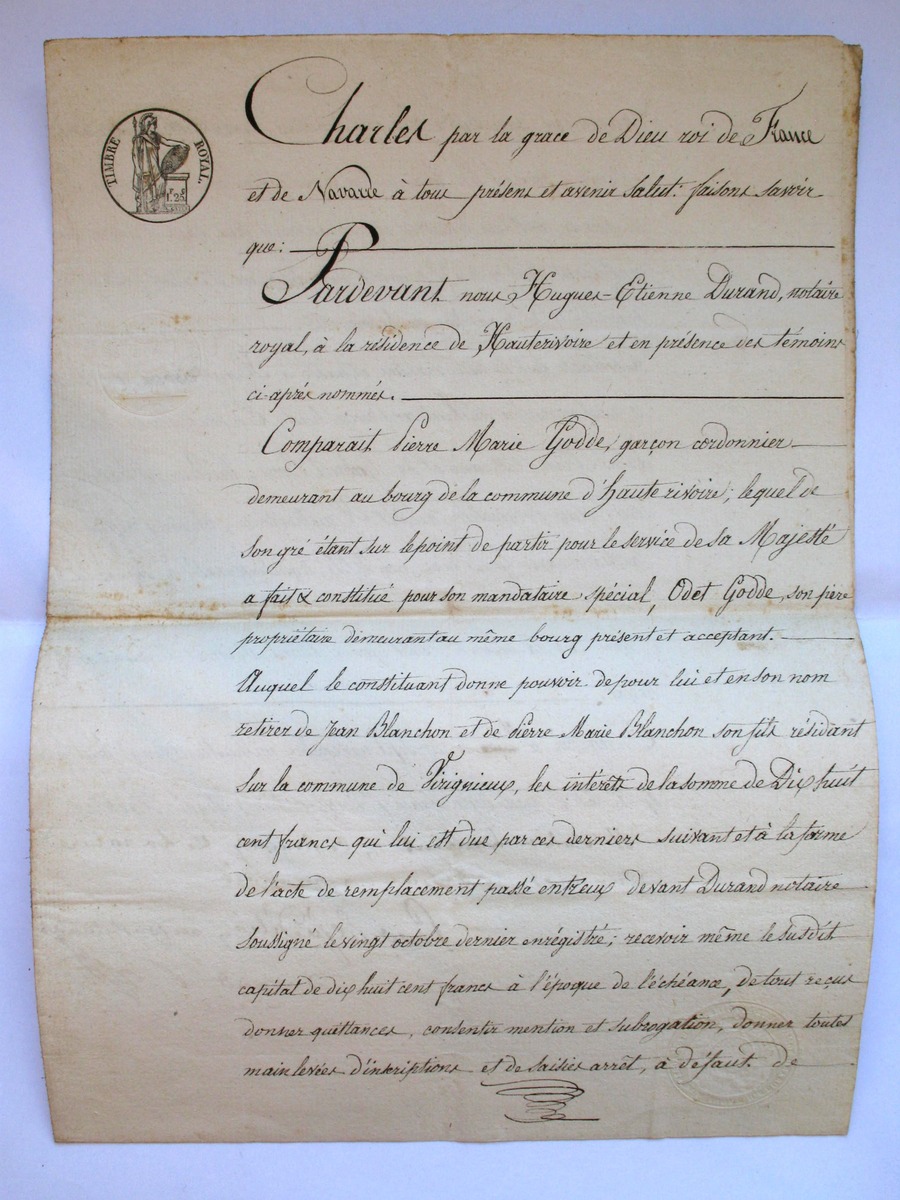 TIMBRE ROYAL.
1.F 25.c
Charles par la grace de Dieu roi de France
et de Navarre à tous présens et avenir Salut: faisons savoir
que:
Pardevant nous Hugues-Etienne Durand, notaire
royal, à la résidence de Hauterivoire et en présence des témoins
ci-après nommés.
Comparait Pierre Marie Godde, garçon cordonnier
demeurant au bourg de la commune d'hauterivoire; lequel de
son gré étant sur le point de partir pour le service de sa Majesté
a fait & constitué pour son mandataire spécial, Odet Godde, son père
propriétaire demeurant au même bourg présent et acceptant.
Auquel le constituant donne pouvoir de pour lui et en son nom
retirer de Jean Blanchon et de Pierre Marie Blanchon son fils résidant
sur la commune de Virignieux, les intérêts de la somme de Dix huit
cent francs qui lui est due par ces derniers suivant et à la forme
de l'acte de remplacement passé entr'eux devant Durand notaire
soussigné le vingt octobre dernier enrégistré; recevoir même le susdit
capital de dix huit cent francs à l'époque de l'échéance, de tout reçus
donner quittances, consentir mention et subrogation, donner toutes
main levées d'inscriptions et de saisies arrêt, à défaut de